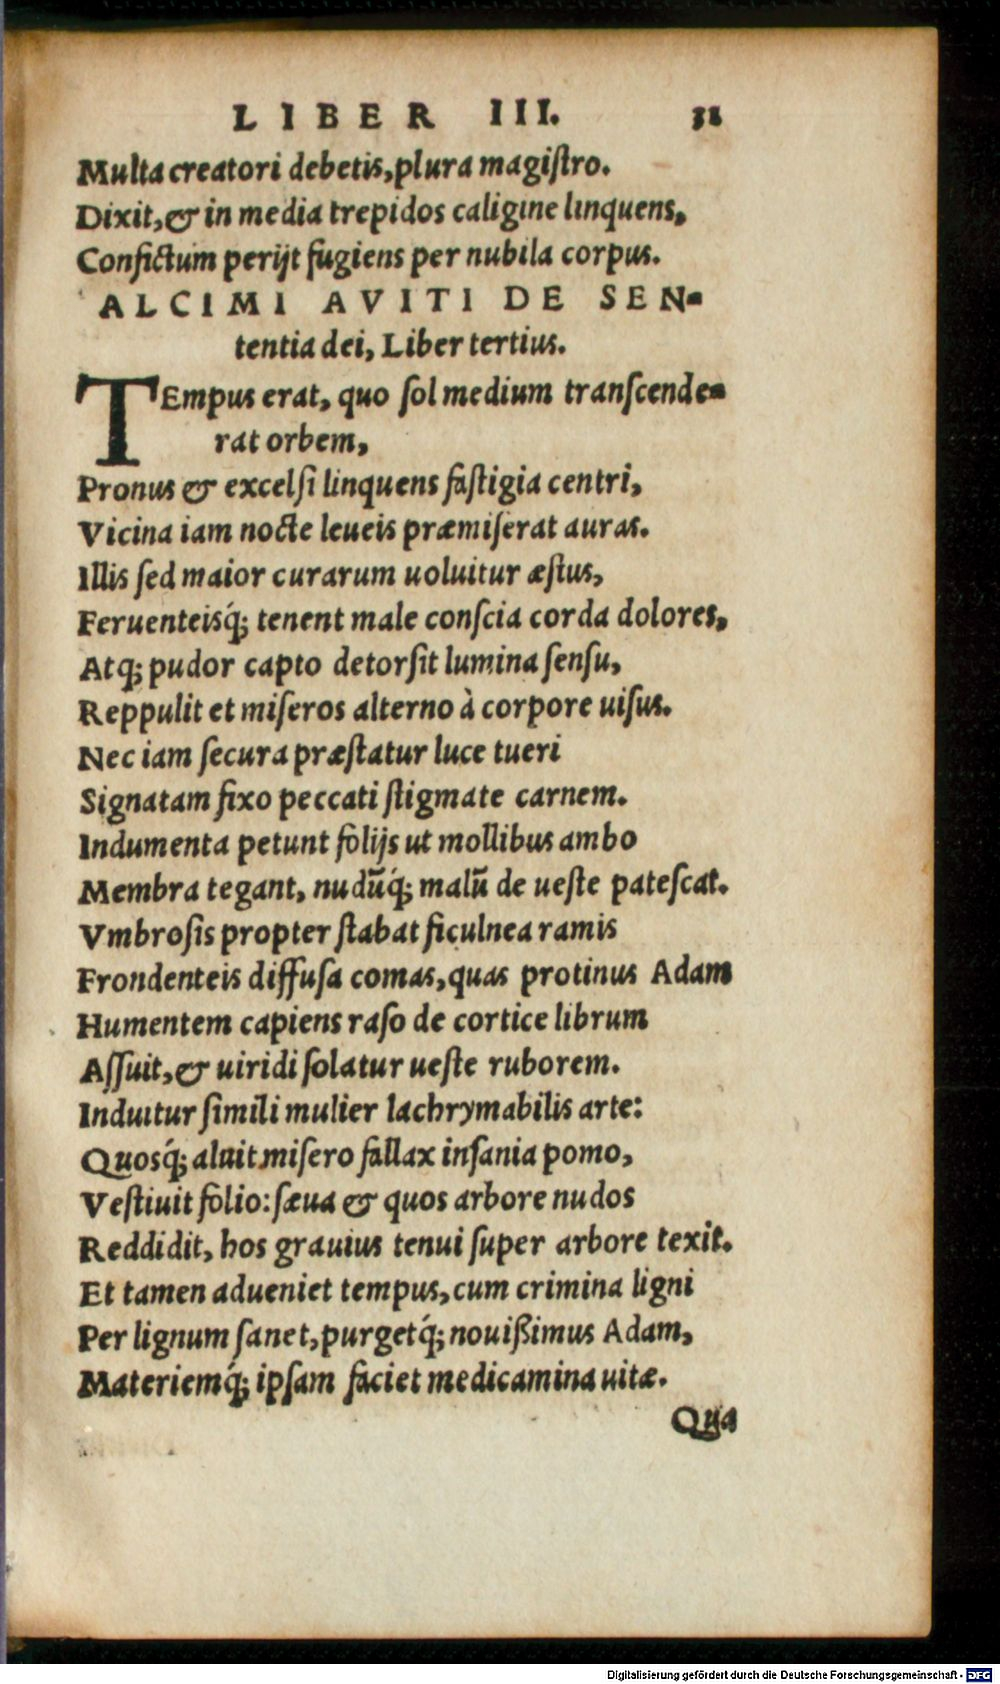 LIBER III. 31
Multa creatori debetis, plura magiſtro.
Dixit, & in media trepidos caligine linquens,
Confictum perijt fugiens per nubila corpus.
ALCIMI AVITI DE SEN-
tentia dei, Liber tertius.
TEmpus erat, quo ſol medium tranſcende-
rat orbem,
Pronus & excelſi linquens faſtigia centri,
Vicina iam nocte leueis præmiſerat auras.
Illis ſed maior curarum uoluitur æſtus,
Feruenteisq́; tenent male conſcia corda dolores,
Atq; pudor capto detorſit lumina ſenſu,
Reppulit et miſeros alterno à corpore uiſus.
Nec iam ſecura præſtatur luce tueri
Signatam fixo peccati ſtigmate carnem.
Indumenta petunt folijs ut mollibus ambo
Membra tegant, nudũq́; malũ de ueſte pateſcat.
Vmbroſis propter ſtabat ficulnea ramis
Frondenteis diffuſa comas, quas protinus Adam
Humentem capiens raſo de cortice librum
Aſſuit, & uiridi ſolatur ueſte ruborem.
Induitur ſimili mulier lachrymabilis arte:
Quosq́; aluit miſero fallax inſania pomo,
Veſtiuit folio: ſæua & quos arbore nudos
Reddidit, hos grauius tenui ſuper arbore texit.
Et tamen adueniet tempus, cum crimina ligni
Per lignum ſanet, purgetq́; nouißimus Adam,
Materiemq́; ipſam faciet medicamina uitæ.
Qua
Digitalisierung gefördert durch die Deutsche Forschungsgemeinschaft - DFG